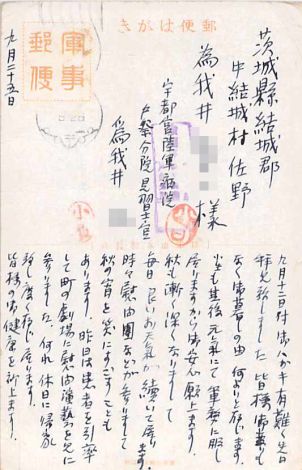 郵便はがき
軍事
郵便
九月二十五日
茨城縣結城郡
中結城村佐野
為我井
様
宇都宮陸軍病院
戸祭分院見習士官
為我井
九月十二日付おハガキ有難く先日
拝見致しました 皆様御無事
な御暮しの由 何よりと存じます。
小生も其後元気にて軍務に服し
居りますから御安心願上ます。
秋も漸く深くなりまして
毎日良いお天気が続いて居ります
時々慰問團などが参りまして
秋の宵を笑にすごすことも
あります。昨日は患者を引率
して町の劇場に慰問演藝を見に
参りました。何れ休日に帰家
致し度く思って居ります。
皆様の御健康を祈上ます。